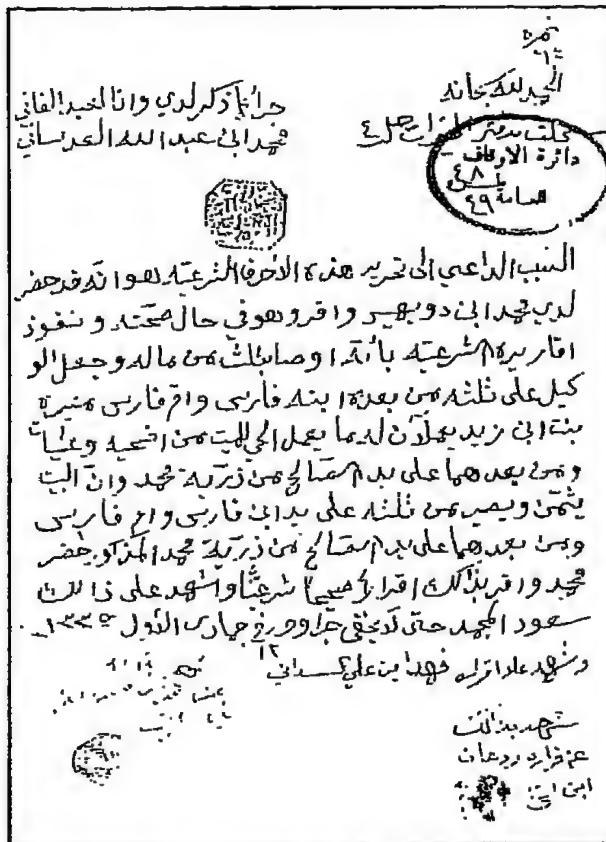 نمرة
الحمد لله سبحانه
جرا ما ذكر لدي وانا العبد الفاني
محمد ابن عبد الله العدساني
دائرة الاوقاف
٤٨
٤٩
السبب الداعي الى تحرير هذه الأحرف الشرعيه هو انه قد حضر
لدي محمد ابن دويهيس واقر وهو في حال صحته ونفوذ
اقاريره الشرعيه بأنه اوصا بثلث من ماله وجعل الو
كيل على ثلثه من بعده ابنه فارس وام فارس منيره
بنت ابن مزيد يعملان له ما يعمل الحي للميت من اضحيه وعشيات
ومن بعدهما على يد الصالح من ذرية محمد وان البيت
يثمن ويصير من ثلثه على يد ابن فارس وام فارس
ومن بعدهما على يد الصالح من ذرية محمد المذكور حضر
محمد واقر بذالك اقرارا صحيحا شرعيا واشهد على ذالك
سعود المحمد حتى لا يخفى جرا وحرر في جمادى الأول ١٣٣٥
١٢
وشهد علا اقراره فهد ابن علي
شهد بذالك
ابن